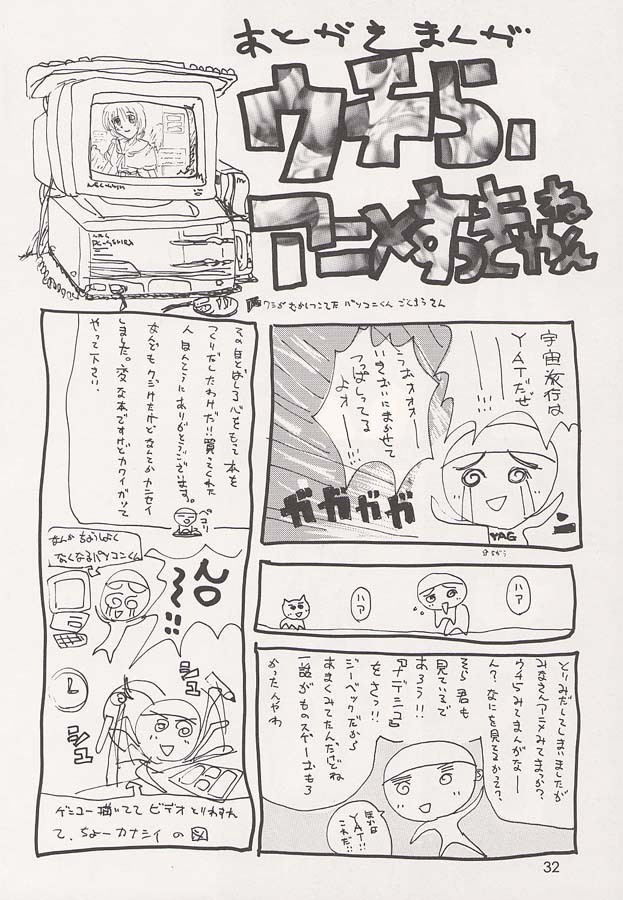 あとがきまんが
ウチら、
アニメすっきやねん
宇宙旅行は
YATだぜ
うおォォォー
いきおいにまかせて
つっぱしってる
よォー
ガガガガガ
YAG
ハア
ハア
とりみだしてしまいましたが
みなさんアニメみてまっか?
ウチらみてまんがなー
ん?なにを見てるかって?
そら君も
見ているで
あろう!!
ナデシコ
をさっ!!
ジーベックだから
あまくみてたんだけどね
一話がものスゲーおもろ
かったんやわ
ほかは
YAT!!
これだ!!
その目とばしる心をもって本を
つくりだしたわけだ!!買ってくれた
人ほんとうにありがとうございます。
なんどもクジけたけどなんとかカンセイ
しました。変な本ですけどカワイがって
やって下さい。
ペコリ
なんかちょうしよく
なくなるパソコンくん
シュ
シュ
ゲシュコー描いてて ビデオとりわすれ
て、ちょーカナシイの図
32